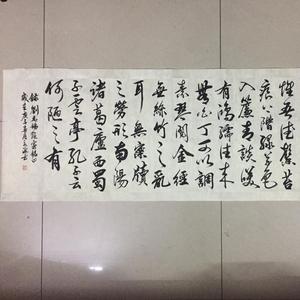 惟吾德馨苔
痕上階綠草色
入簾青談笑
有鴻儒往來
無白丁可以調
素琴閱金經
無絲竹之亂
耳無案牘
之勞形南陽
諸葛廬西蜀
子雲亭孔子云
何陋之有
錄劉禹錫陋室銘